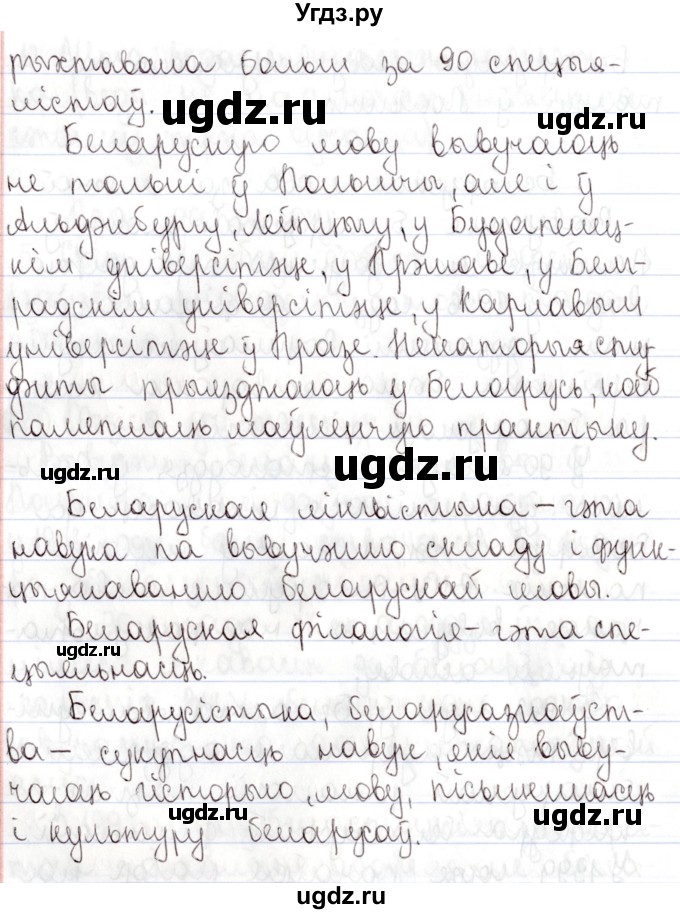 Угдз.ру
рыхтавала больш за 90 спецыя-
лістаў.
ugdz.ru
ugdz.ru
Беларускую мову вывучаюць
не толькі ў Польшчы, але і ў
Альдэнбургу, Лейпцыгу, у Будапешц-
кім універсітэце, у Прэшаве, у Бел-
градскім універсітэце, у Карлавым
універсітэце ў Празе. Некаторыя сту
дэнты прыязджаюць у Беларусь, каб
палепшаць моўленчую практыку.
ugdz.ru
ugdz.ru
Беларуская лінгвістыка – гэта
навука па вывучэнню складу і функ-
цыянаванню беларускай мовы.
Беларуская філалогія – гэта спе-
ugdz.ru
цыяльнасць.
Беларусістыка, беларусазнаўст-
ва – сукупнасць навук, якія выву-
чаюць гісторыю, мову, пісьменнасць
ugdz.ru
ugdz.ru
і культуру беларусаў.
ugdz.ru